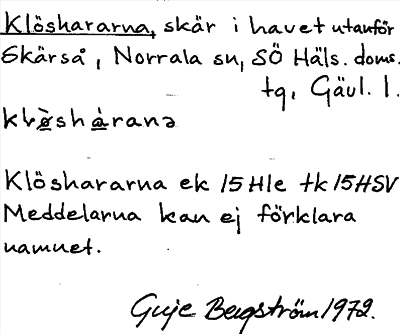 Klöshararna, skär i havet utanför
Skärså, Norrala sn, SÖ Häls. doms.
tg, Gävl. l.
Klöshararna ek 15Hle tk 15HSV
Meddelarna kan ej förklara
namnet.
Guje Bergström 1972.